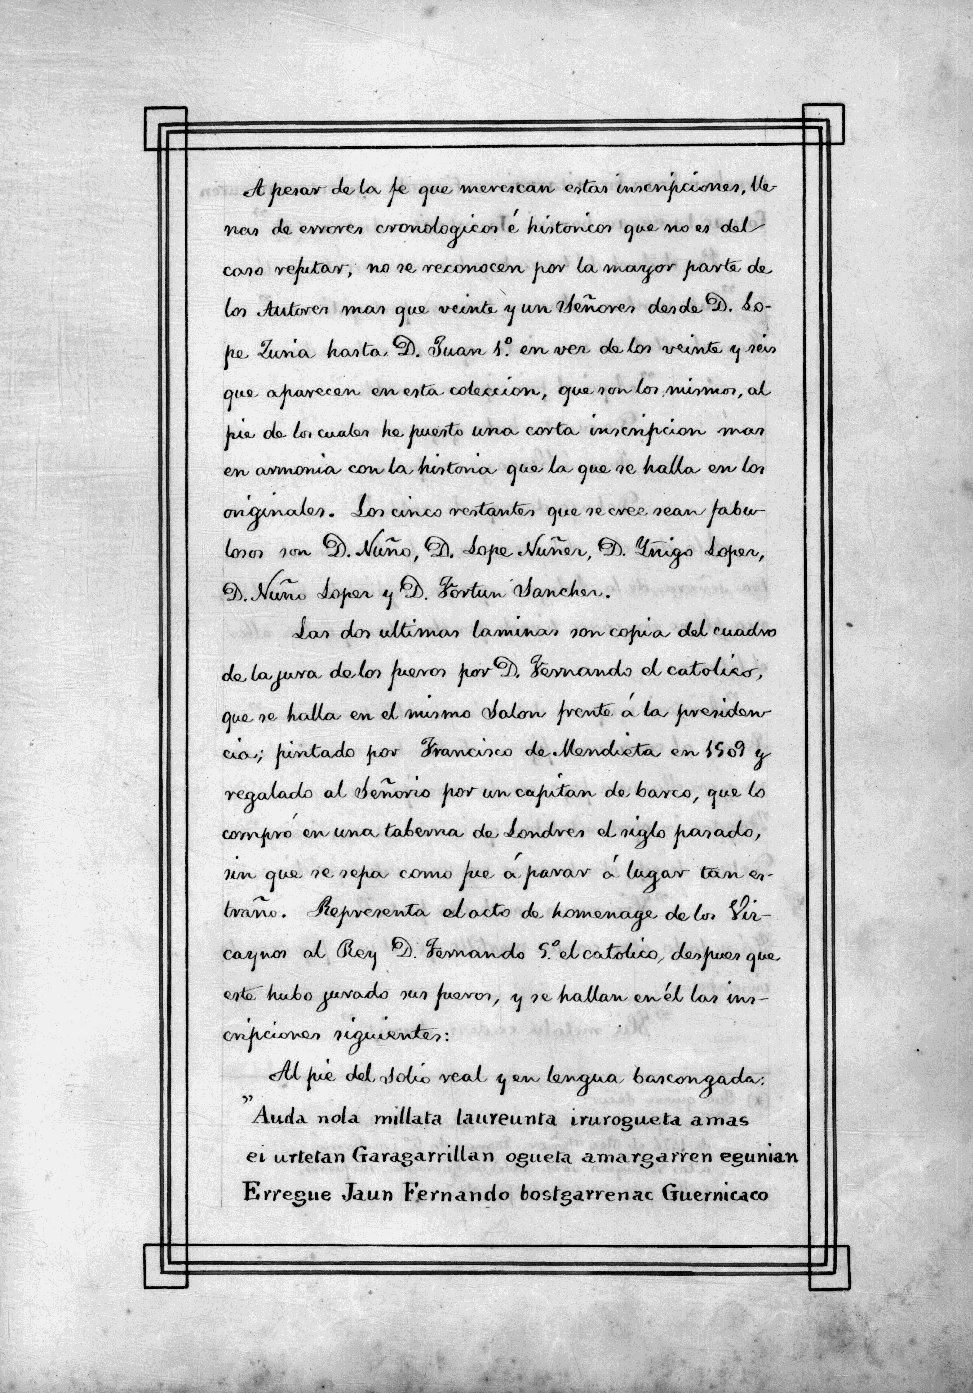 A pesar de la fe que merescan estas inscripciones, lle-
nas de errores cronologicos é historicos que no es del
caso refutar, no se reconocen por la mayor parte de
los Autores mas que veinte y un Señores desde D. Lo-
pe Zuria hasta D. Juan 1º. en vez de los veinte y seis
que aparecen en esta coleccion, que son los mismos, al
pie de los cuales he puesto una corta inscripcion mas
en armonia con la historia que la que se halla en los
originales. Los cinco restantes que se cree sean fabu-
losos son D. Nuño, D. Lope Nuñez, D. Yñigo Lopez,
D. Nuño Lopez y D. Fortun Sanchez.
Las dos ultimas laminas son copia del cuadro
de la jura de los fueros por D. Fernando el catolico,
que se halla en el mismo Salon frente á la presiden-
cia; pintado por Francisco de Mendieta en 1509 y
regalado al Señorio por un capitan de barco, que lo
compró en una taberna de Londres el siglo pasado,
sin que se sepa como fue á parar á lugar tan es-
traño. Representa el acto de homenage de los Viz-
caynos al Rey D. Fernando 5.º el catolico, despues que
este hubo jurado sus fueros, y se hallan en él las ins-
cripciones siguientes:
Al pie del Solio real y en lengua bascongada:
"Auda nola millata laureunta irurogueta amas
ei urtetan Garagarrillan ogueta amargarren egunian
Erregue Jaun Fernando bostgarrenac Guernicaco